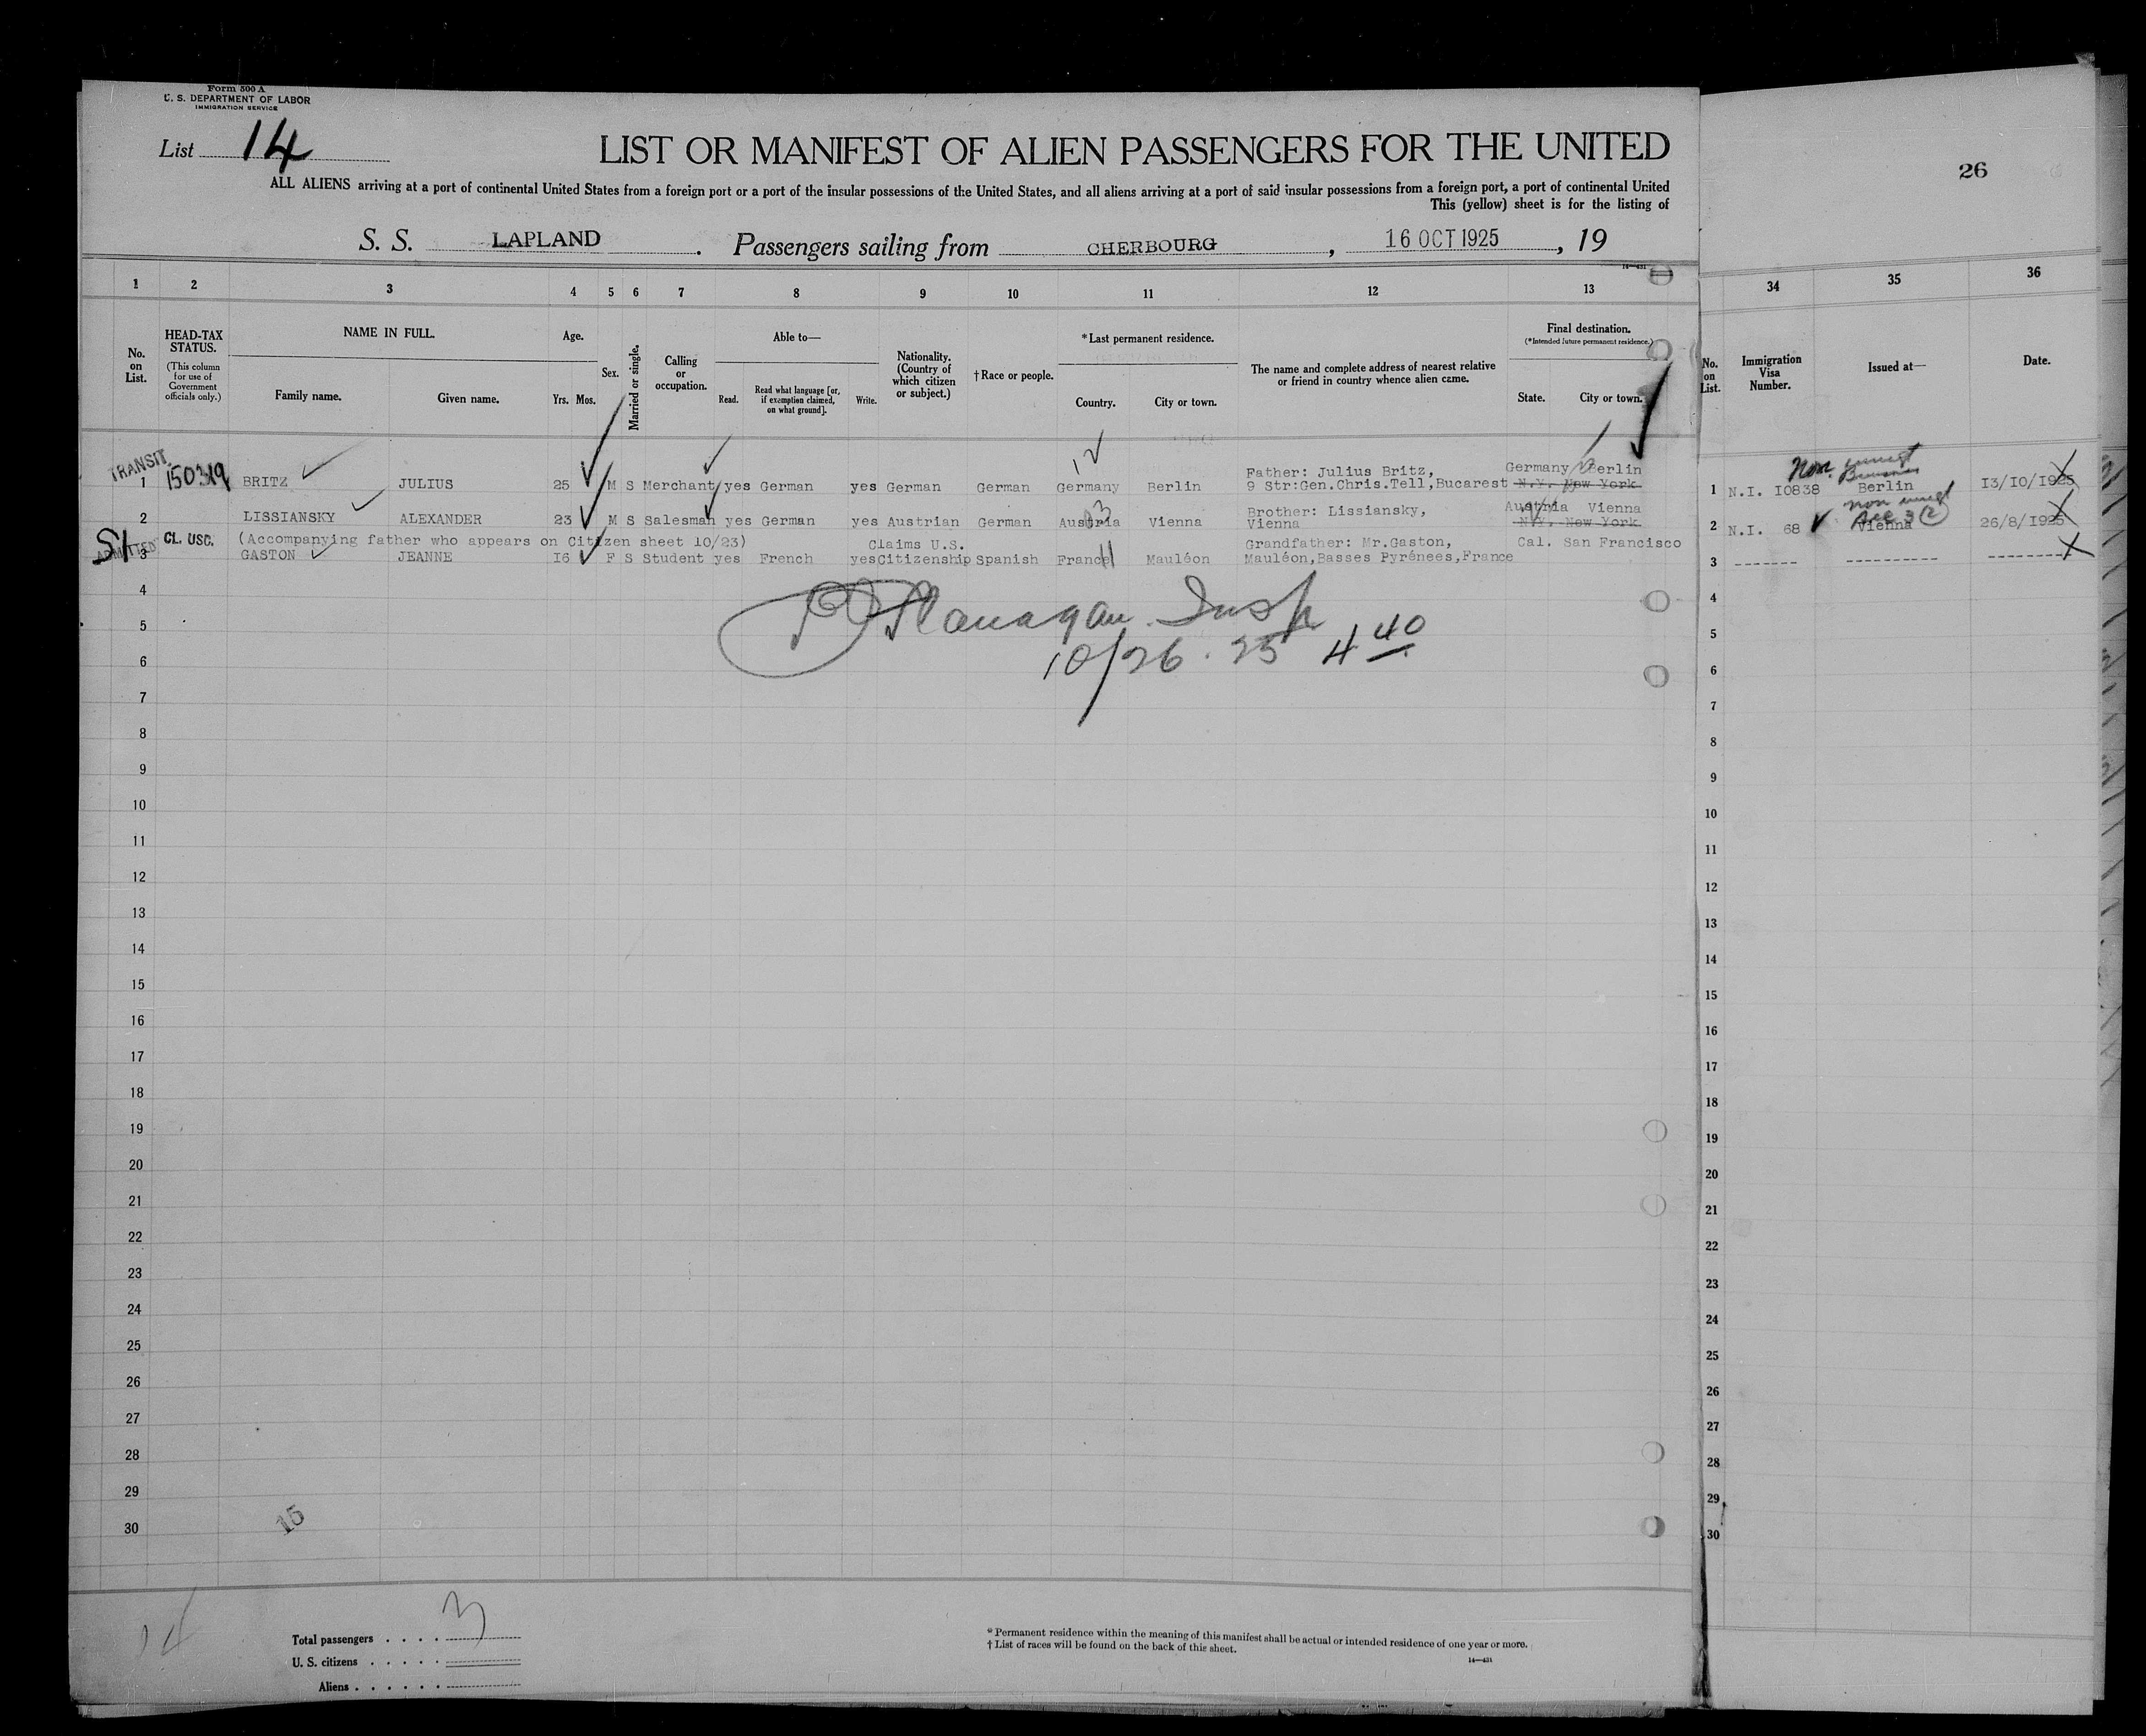 Form 500 A
U. S. DEPARTMENT OF LABOR
IMMIGRATION SERVICE
List 14
LIST OR MANIFEST OF ALIEN PASSENGERS FOR THE UNITED
26
ALL ALIENS arriving at a port of continental United States from a foreign port or a port of the insular possessions of the United States, and all aliens arriving at a port of said insular possessions from a foreign port, a port of continental United
This (yellow) sheet is for the listing of
S. S. LAPLAND. Passengers sailing from CHERBOURG, 16 OCT 1925, 19
1 2 3 4 5 6 7 8 9 10 11 12 13 34 35 36
No. on List.
HEAD-TAX STATUS.
(This column for use of Government officials only.)
NAME IN FULL.
Family name. Given name.
Age.
Yrs. Mos.
Sex.
Married or single.
Calling or occupation.
Able to—
Read. Read what language [or, if exemption claimed, on what ground]. Write.
Nationality. (Country of which citizen or subject.)
†Race or people.
*Last permanent residence.
Country. City or town.
The name and complete address of nearest relative or friend in country whence alien came.
Final destination.
(*Intended future permanent residence.)
State. City or town.
No. on List.
Immigration Visa Number.
Issued at—
Date.
TRANSIT
Father: Julius Britz, Germany Berlin
1 150319 BRITZ JULIUS 25 M S Merchant yes German yes German German Germany Berlin 9 Str:Gen.Chris.Tell,Bucarest N.Y. New York 1 N.I. I0838 Berlin I3/IO/I925
12
Non
Brother: Lissiansky, Austria Vienna
2 LISSIANSKY ALEXANDER 23 M S Salesman yes German yes Austrian German Austria Vienna Vienna N.Y. New York 2 N.I. 68 Vienna 26/8/I925
03
non
3 (2)
CL. USC. (Accompanying father who appears on Citizen sheet 10/23) Claims U.S. Grandfather: Mr.Gaston, Cal. San Francisco
ADMITTED
3 GASTON JEANNE I6 F S Student yes French yes Citizenship Spanish France Mauléon Mauléon,Basses Pyrénees,France 3
11
4 4
Flanagan. Insp
5 5
10/26.25 4 40
6 6
7 7
8 8
9 9
10 10
11 11
12 12
13 13
14 14
15 15
16 16
17 17
18 18
19 19
20 20
21 21
22 22
23 23
24 24
25 25
26 26
27 27
28 28
29 29
30 30
15
14
Total passengers . . . . 3
U. S. citizens . . . . .
Aliens . . . . . .
* Permanent residence within the meaning of this manifest shall be actual or intended residence of one year or more.
† List of races will be found on the back of this sheet.
14—431